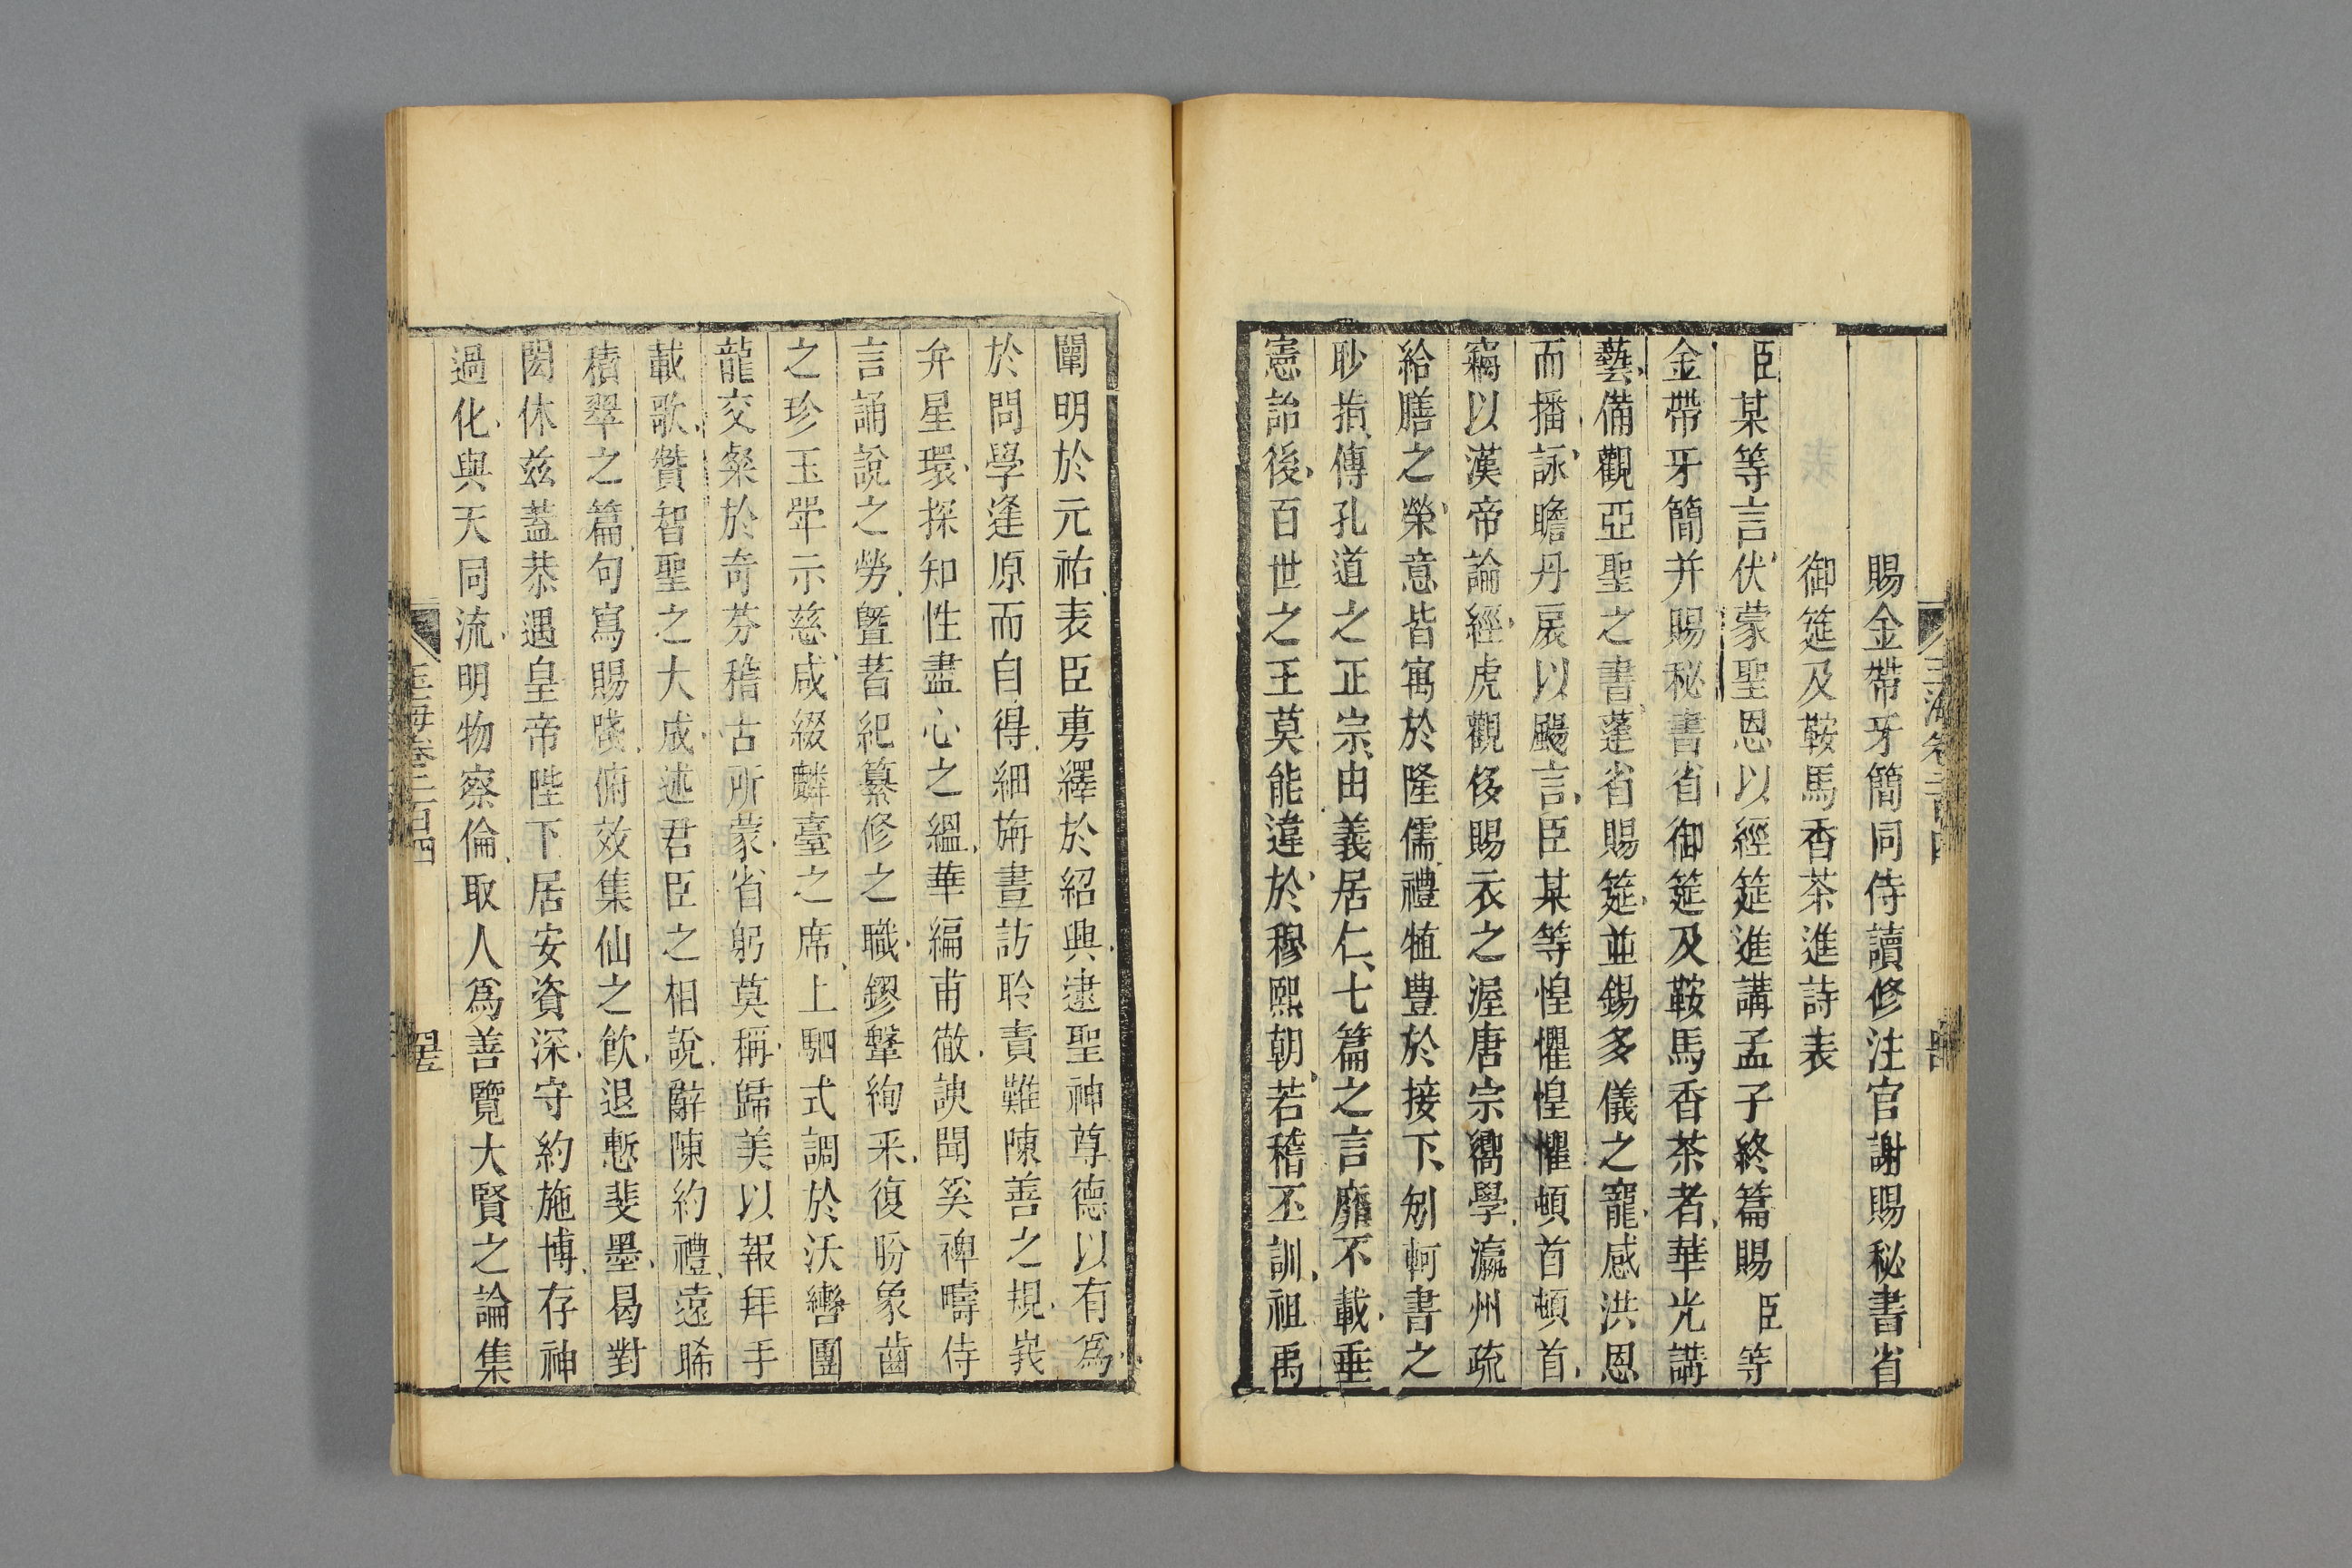 賜金帶牙簡同侍讀修注官謝賜秘書省
御筵及鞍馬香茶進詩表
臣某等言伏蒙聖恩以經筵進講孟子終篇賜臣等
金帶牙簡并賜秘書省御筵及鞍馬香茶者華光講
藝備觀亞聖之書蓬省賜筵並錫多儀之寵感洪恩
而播詠瞻丹扆以颺言臣某等惶懼惶懼頓首頓首
竊以漢帝論經虎觀侈賜衣之渥唐宗嚮學瀛州疏
給膳之榮意皆寓於隆儒禮牰豊於接下矧軻書之
眇㫖傳孔道之正宗由義居仁七篇之言靡不載垂
憲詒後百世之王莫能違於穆熙朝若稽丕訓祖禹
闡明於元祐表臣旉繹於紹興逮聖神尊德以有爲
於問學逢原而自得細旃晝訪聆責難陳善之規峩
弁星環探知性盡心之縕華編甫徹諛聞奚裨疇侍
言誦說之勞曁耆紀纂修之職鏐鞶絢釆復盼象齒
之珍玉斝示慈咸綴麟臺之席上駟式調於沃轡團
龍交粲於奇芬稽古所蒙省躬莫稱歸美以報拜手
載歌贊智聖之大成述君臣之相說辭陳約禮遠睎
積翠之篇句寫賜牋俯效集仙之飲退慙斐墨曷對
閎休茲蓋恭遇皇帝陛下居安資深守約施博存神
過化與天同流明物察倫取人爲善覽大賢之論集
玉海卷二百四